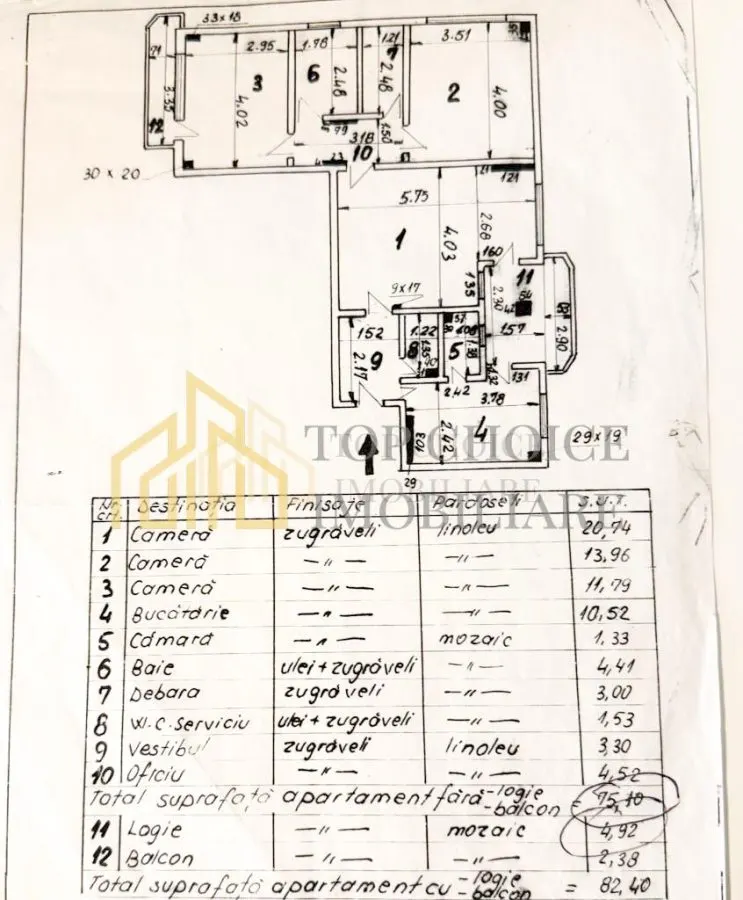 33×18
2.95
1.78
1.21
3.51
21
3
6
7
2
2.48
2.48
3.35
4.02
4.00
12
99
1.50
318
10
23
30 × 20
21
121
5.75
1
4.03
2.68
160
11
9×17
135
2.30
54
42
152
1.22
37
1.35
1.38
157
2.90
9
8
5
2.17
90
2.42
131
3.78
4
2.42
29×19
29
TOP CHOICE
IMOBILIARE
IMOBILIARE
Nr. crt. Destinația Finisaje Pardoseli S.U.T.
1 Cameră zugrăveli linoleu 20,74
2 Cameră —〃— —〃— 13,96
3 Cameră —〃— —〃— 11,79
4 Bucătărie —〃— —〃— 10,52
5 Cămară —〃— mozaic 1,33
6 Baie ulei+zugrăveli —〃— 4,41
7 Debara zugrăveli —〃— 3,00
8 W.C. serviciu ulei+zugrăveli —〃— 1,53
9 Vestibul zugrăveli linoleu 3,30
10 Oficiu —〃— —〃— 4,52
Total suprafață apartament fără -logie -balcon = 75,10
11 Logie —〃— mozaic 4,92
12 Balcon —〃— —〃— 2,38
Total suprafață apartament cu -logie -balcon = 82,40